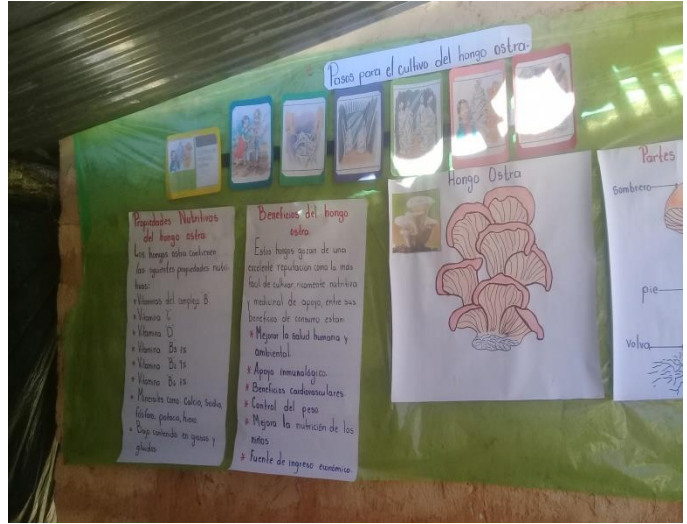 Pasos para el cultivo del hongo ostra.
Propiedades Nutritivas
del hongo ostra
Los hongos ostra contienen
las siguientes propiedades nutri-
tivas:
* Vitaminas del complejo B
* Vitamina C
* Vitamina D
* Vitamina
* Vitamina
* Vitamina
* Minerales como Calcio, Sodio,
fósforo, potasio, hierro.
* Bajo contenido en grasas y
Beneficios del hongo
ostra
Estos hongos gozan de una
excelente reputación como la mas
facil de cultivar, ricamente nutritiva
medicinal de apoyo, entre sus
beneficios de consumo estan
* Mejorar la salud humana y
ambiental
* Apoyo inmunológico
* Beneficios cardiovasculares
* Control del peso
* Mejora la nutrición de los
niños
* Fuente de ingreso económico.
Hongo Ostra
Partes
Sombrero
pie
Volva